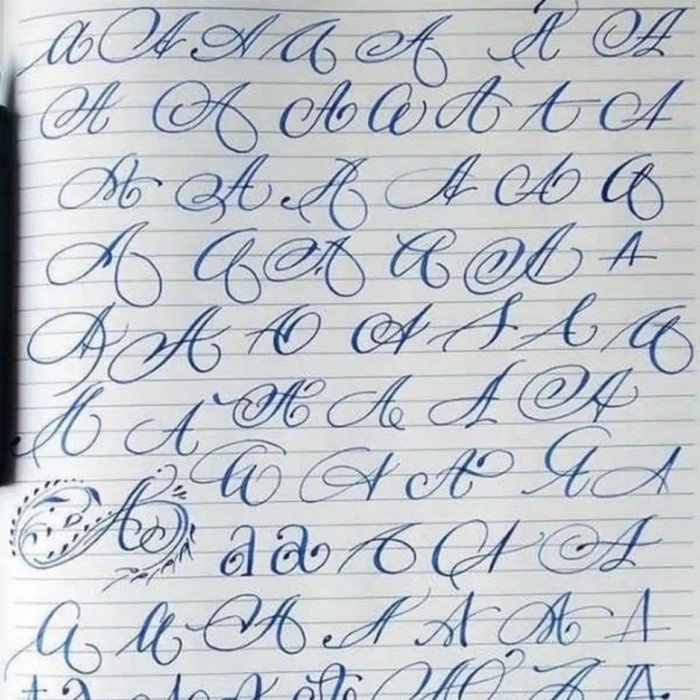 a A A A A A A
A A A A A A A
A A A A A A
A A A A A A
A A A A A A A
A A A A A A
A A A A A
A a a A A A
A A A A A A A